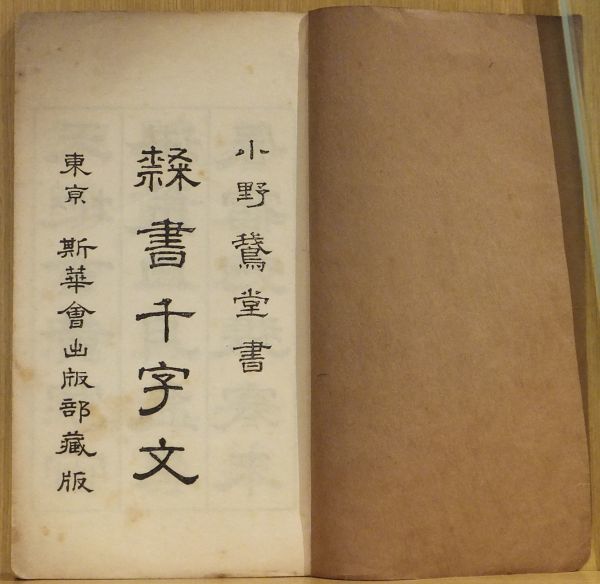 小野鵞堂書
隸書千字文
東京 斯華會出版部藏版